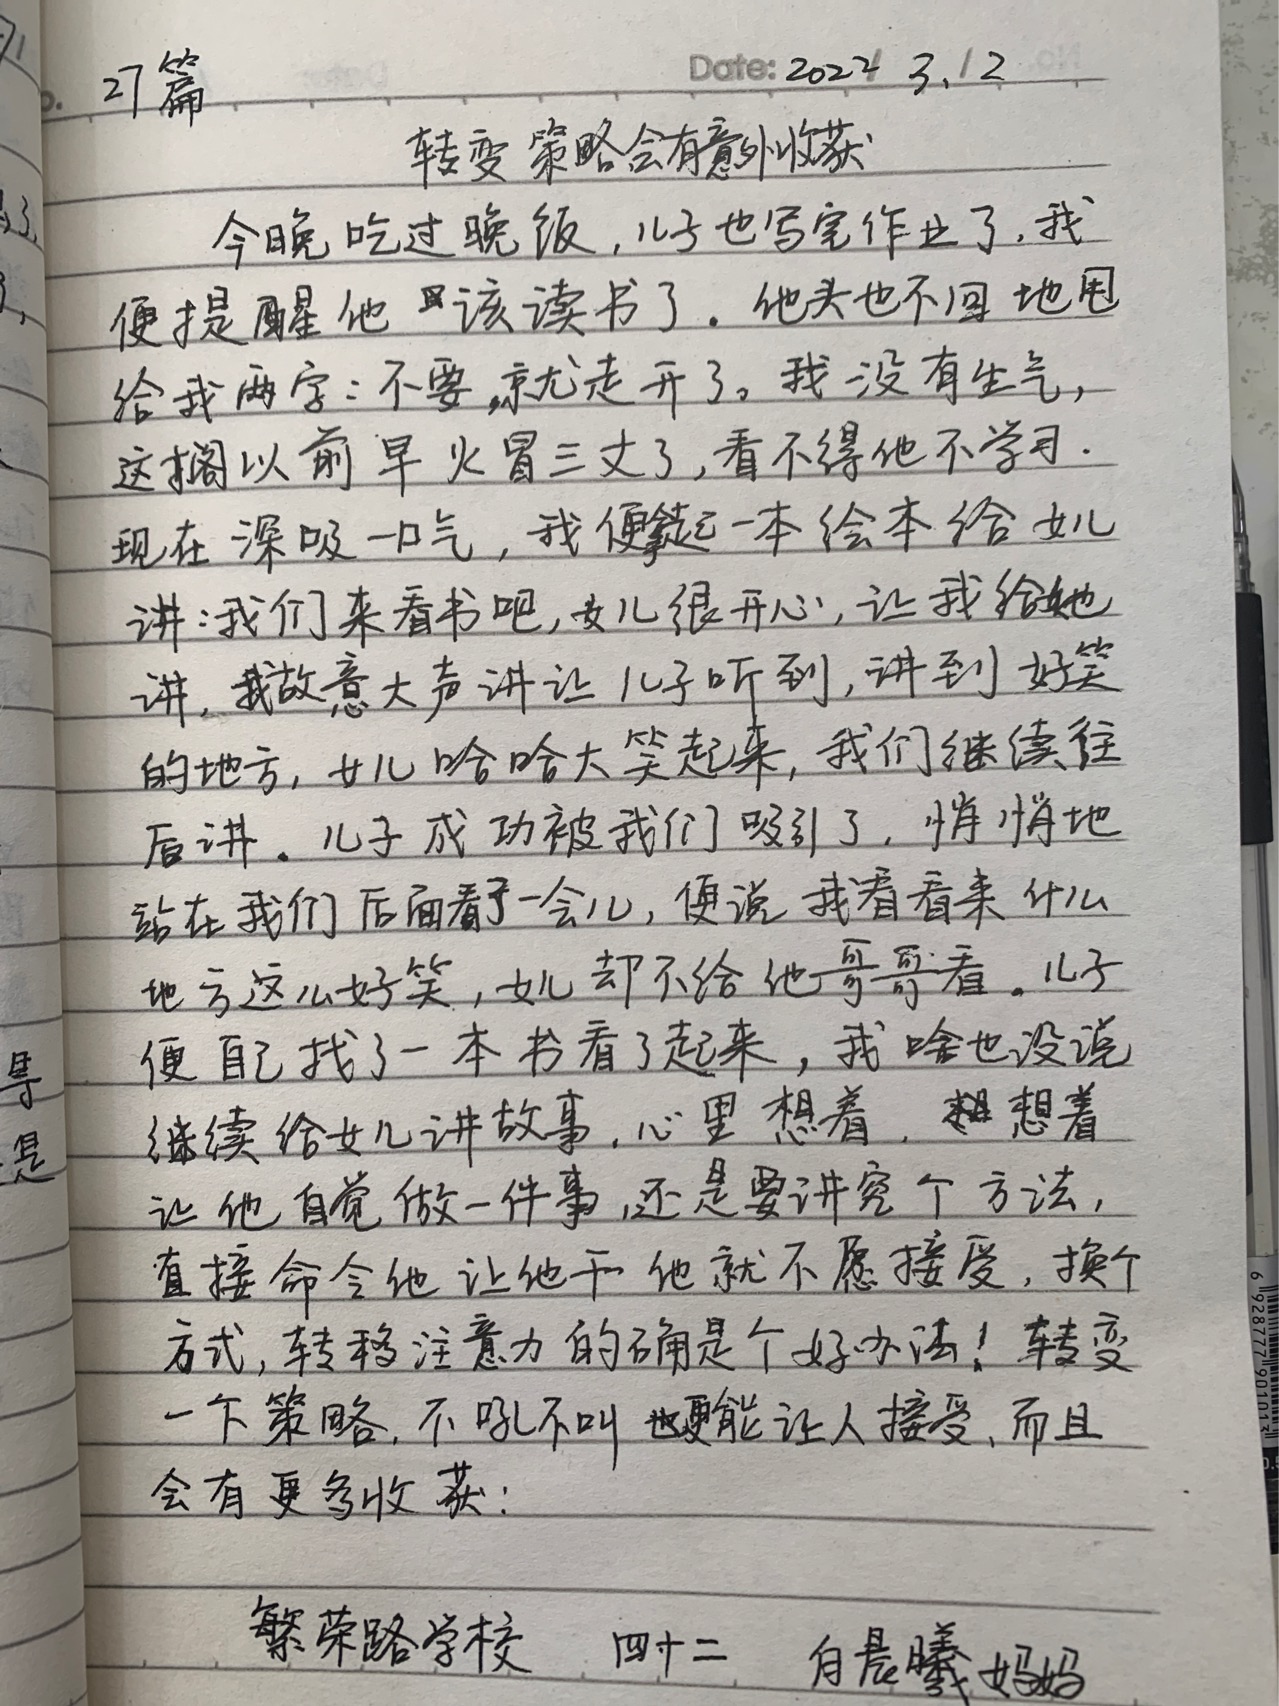 27篇
Date: 2022 3.12
转变策略会有意外收获
今晚吃过晚饭,儿子也写完作业了,我
便提醒他该读书了。他头也不回地甩
给我两字:不要,就走开了。我没有生气,
这搁以前早火冒三丈了,看不得他不学习.
现在深吸一口气,我便拿起一本绘本给女儿
讲:我们来看书吧,女儿很开心,让我给她
讲,我故意大声讲让儿子听到,讲到好笑
的地方,女儿哈哈大笑起来,我们继续往
后讲。儿子成功被我们吸引了,悄悄地
站在我们后面看了一会儿,便说我看看来什么
地方这么好笑,女儿却不给他哥哥看。儿子
便自己找了一本书看了起来,我啥也没说
继续给女儿讲故事,心里想着,想着
让他自觉做一件事,还是要讲究个方法,
直接命令他让他干他就不愿接受,换个
方式,转移注意力的确是个好办法!转变
一下策略,不吼不叫也更能让人接受,而且
会有更多收获:
繁荣路学校 四十二 白晨曦妈妈
导
是
6 928777 901013